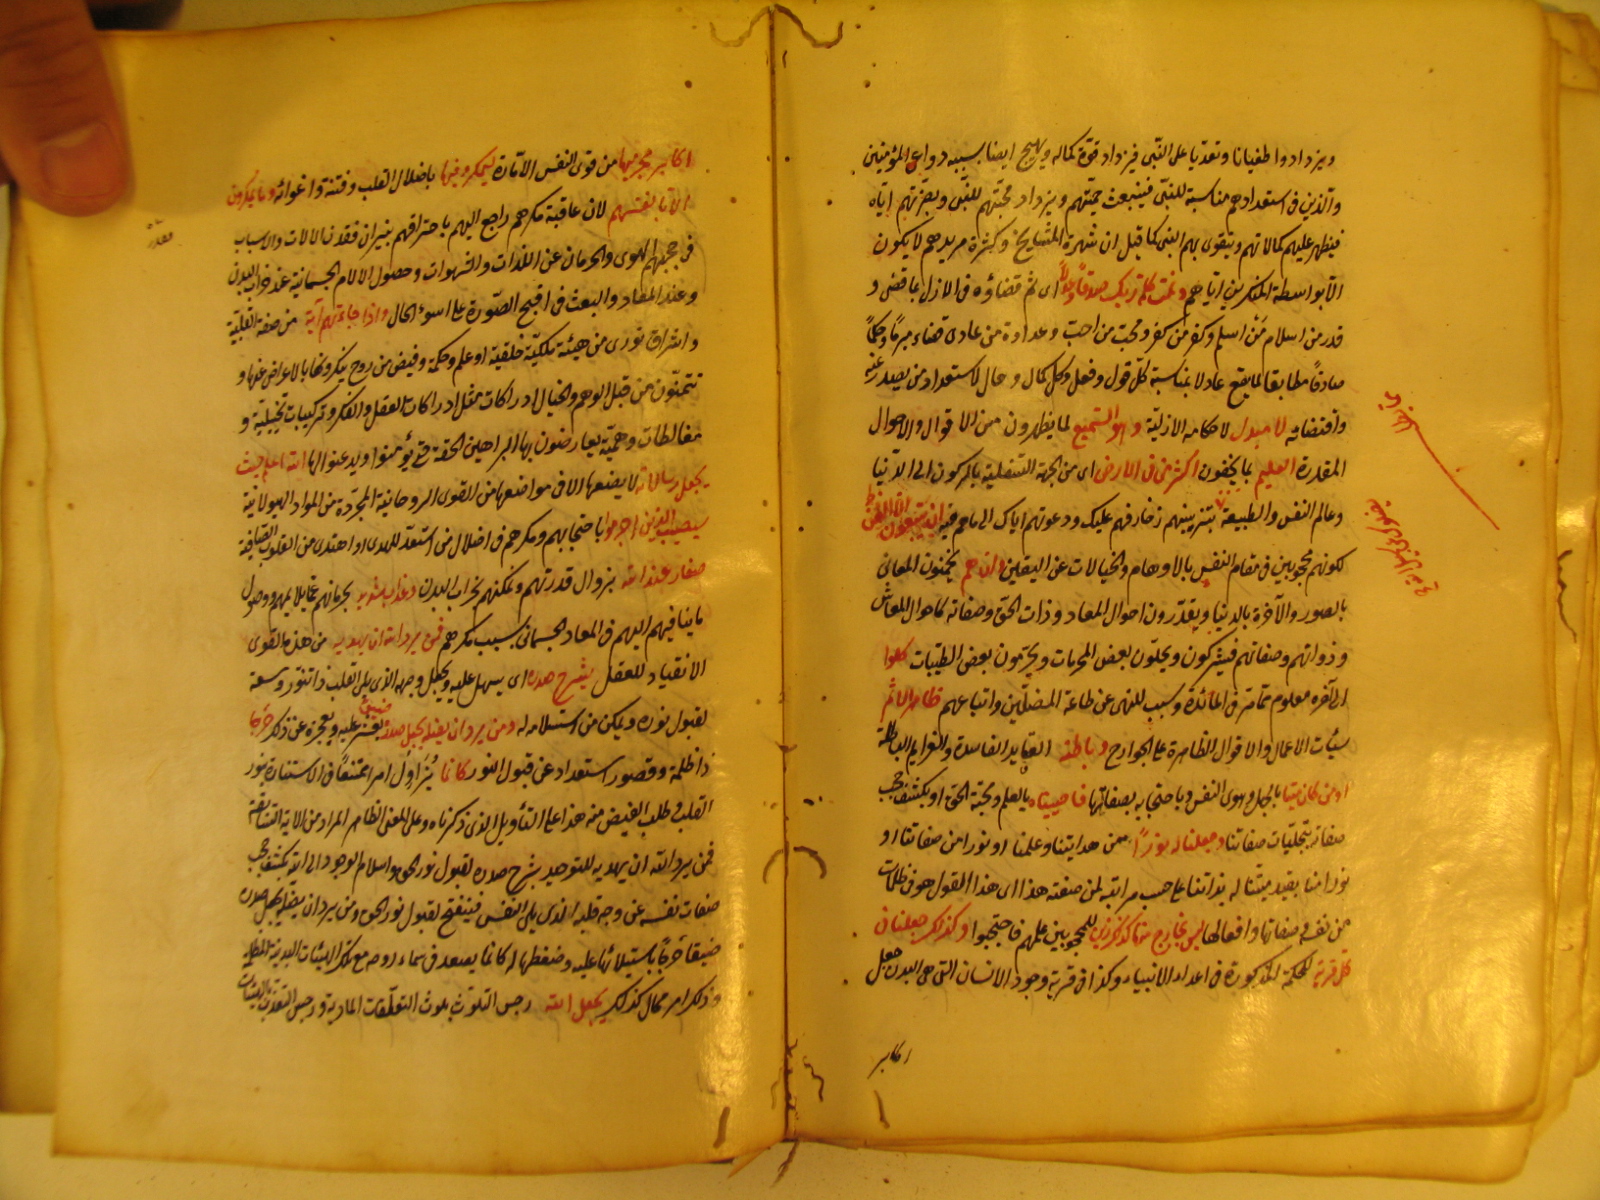 ويزدادوا طغيانا وتعديا على النبى فيزداد قوة كماله ويهيج ايضا بسببه دواعى المؤمنين
والذين فى استعدادهم مناسبة للنبى فينبعث حميتهم ويزداد محبتهم للنبى وبصرتهم اياه
فيظهر عليهم كمالاتهم ويتقوى بهم النبى كما قيل ان شهرة المشايخ وكثرة مريديهم لا يكون
الا بواسطة المنكرين اياهم وتمت كلمة ربك صدقا وعدلا اى تم قضاؤه فى الازل بما قضى و
قدر من اسلام من اسلم وكفر من كفر ومحبت من احب وعداوة من عادى قضاء مبرما وحكما
صادقا مطابقا لما يقع عادلا بمناسبة كل قول وفعل وكل كمال وحال لاستعداد من يصدر عنه
واقتضائه لا مبدل لاحكامه الازلية وهو السميع لما يظهرون من الاقوال والاحوال
المقدرة العليم بما يخفون اكثر من فى الارض اى من الجهة السفلية بالركون الى الدنيا
وعالم النفس والطبيعة بتزيينهم زخارفهم عليك ودعوتهم اياك الى ما هم فيه ان يتبعون الا الظن
لكونهم محجوبين فى مقام النفس بالاوهام والخيالات عن اليقين وان هم يخمنون المعانى
بالصور والآخرة بالدنيا ويقدرون احوال المعاد وذات الحق وصفاته كاحوال المعاش
وذواتهم وصفاتهم فيشركون ويحلون بعض المحرمات ويحرمون بعض الطيبات كلوا
الى آخره معلوم مما مر فى المائدة وسبب للنهى عن طاعة المضلين واتباعهم ظاهر الاثم
سيئات الاعمال والاقوال الظاهرة على الجوارح وباطنه العقايد الفاسدة والعزايم الباطلة
او من كان ميتا بالجهل وهوى النفس وباحتجابه بصفاتها فاحييناه بالعلم ومحبة الحق او بكشف حجب
صفاته بتجليات صفاتنا وجعلنا له نورا من هدايتنا وعلمنا او نورا من صفاتنا او
نورا منا بقيوميتنا له بذاتنا على حسب مراتبه كمن صفته هذا اى هذا القول هو فى ظلمات
من نفسه صفاتها وافعالها ليس بخارج منها كذلك زين للمحجوبين عملهم فاحتجبوا وكذلك جعلنا فى
كل قرية للحكمة المذكورة فى اعداء الانبياء وكذا فى قرية وجود الانسان التى هى البدن جعل
اكابر
اكابر مجرميها من قوى النفس الامارة ليمكروا فيها باضلال القلب وفتنة واغوائه وما يمكرون
الا بانفسهم لان عاقبة مكرهم راجع اليهم باحتراقهم بنيران فقدن الالات والاسباب
فى جحيم الهوى والحرمان عن اللذات والشهوات وحصول الالام الجسمانية عند خراب البدن
وعند المعاد والبعث فى اقبح الصورة على اسوء الحال واذا جاءتهم آية من صفة القلبية
واشراق نورى من هيئة ملكية خلقية او علم وحكمة وفيض من روح ينكرونها بالاعراض عنها و
تتمنون من قبل الوهم والخيال ادراكات مثل ادراكات العقل والفكر وتركيبات تخيلية و
مغالطات وهمية يعارضون بها البراهين الحقة حتى يؤمنوا ويدعنوا لها الله اعلم حيث
يجعل رسالاته لا يضعها الا فى مواضعها من القوى الروحانية المجردة من المواد الهيولانية
سيصيب الذين اجرموا باحتجابهم ومكرهم فى اضلال من استعد للهدى او اهتدى من القلوب الصافية
صغار عند الله بزوال قدرتهم وتمكنهم بخراب البدن وعذاب شديد بحرمانهم عما يلايمهم ووصول
ما ينافيهم اليهم فى المعاد الجسمانى بسبب مكرهم فمن يرد الله ان يهديه من هذه القوى
الانقياد للعقل يشرح صدره اى يسهل عليه ويجعل وجهه الذى يلى القلب ذا تنور وسعة
لقبول نوره ويمكن من استسلامه له ومن يرد ان يضله يجعل صدره ضيقا يقسر عليه ويعجزه عن ذلك حرجا
ذا ظلمة وقصور استعداد عن قبول النور كانما يزاول امرا ممتنعا فى الاستنارة بنور
القلب فى طلب الفيض منه هذا على التأويل الذى ذكرناه وعلى المعنى الظاهر المراد من الاية السابقة
فمن يرد الله ان يهديه للتوحيد يشرح صدره لقبول نور الحق واسلام الوجود الى الله بكشف حجب
صفات نفسه عن وجه قلبه الذى يلى النفس فينفتح لقبول نور الحق ومن يرد ان يضله يجعل صدره
ضيقا حرجا باستيلائها عليه وضغطها له كانما يصعد فى سماء روحه مع تلك الهيئات البدنية المظلمة
وذلك امر محال كذلك يجعل الله رجس التلوث بلوث التعلقات المادية ورجس التعذب بالهيئات